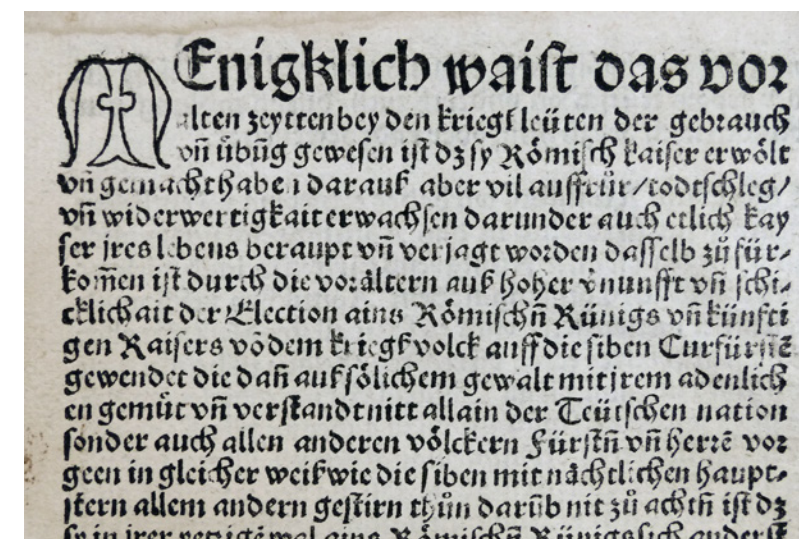 MEnigklich waist das vor
alten zeytten bey den kriegß leüten der gebrauch
vñ übũg gewesen ist dz sy Römisch kaiser erwölt
vñ gemacht haben darauß aber vil auffrür/todtschleg/
vñ widerwertigkait erwachsen darunder auch etlich kay
ser jres lebens beraupt vñ verjagt worden dasselb zů für⸗
komẽn ist durch die vorältern auß hoher v̈nunfft vñ schi⸗
cklichait der Election ains Römischñ Künigs vñ künfti
gen Kaisers võ dem kriegß volck auff die siben Curfürstẽ
gewendet die dañ auß sölichem gewalt mit jrem adenlich
en gemüt vñ verstandt nitt allain der Teütschen nation
sonder auch allen anderen völckern Fürstñ vñ herrẽ vor
geen in gleicher weiß wie die siben mitnächtlichen haupt⸗
stern allem andern gestirn thůn darũb nit zů achtñ ist dz
sy in jrer yetzigẽ wal ains Römischñ Künigs sich anderst